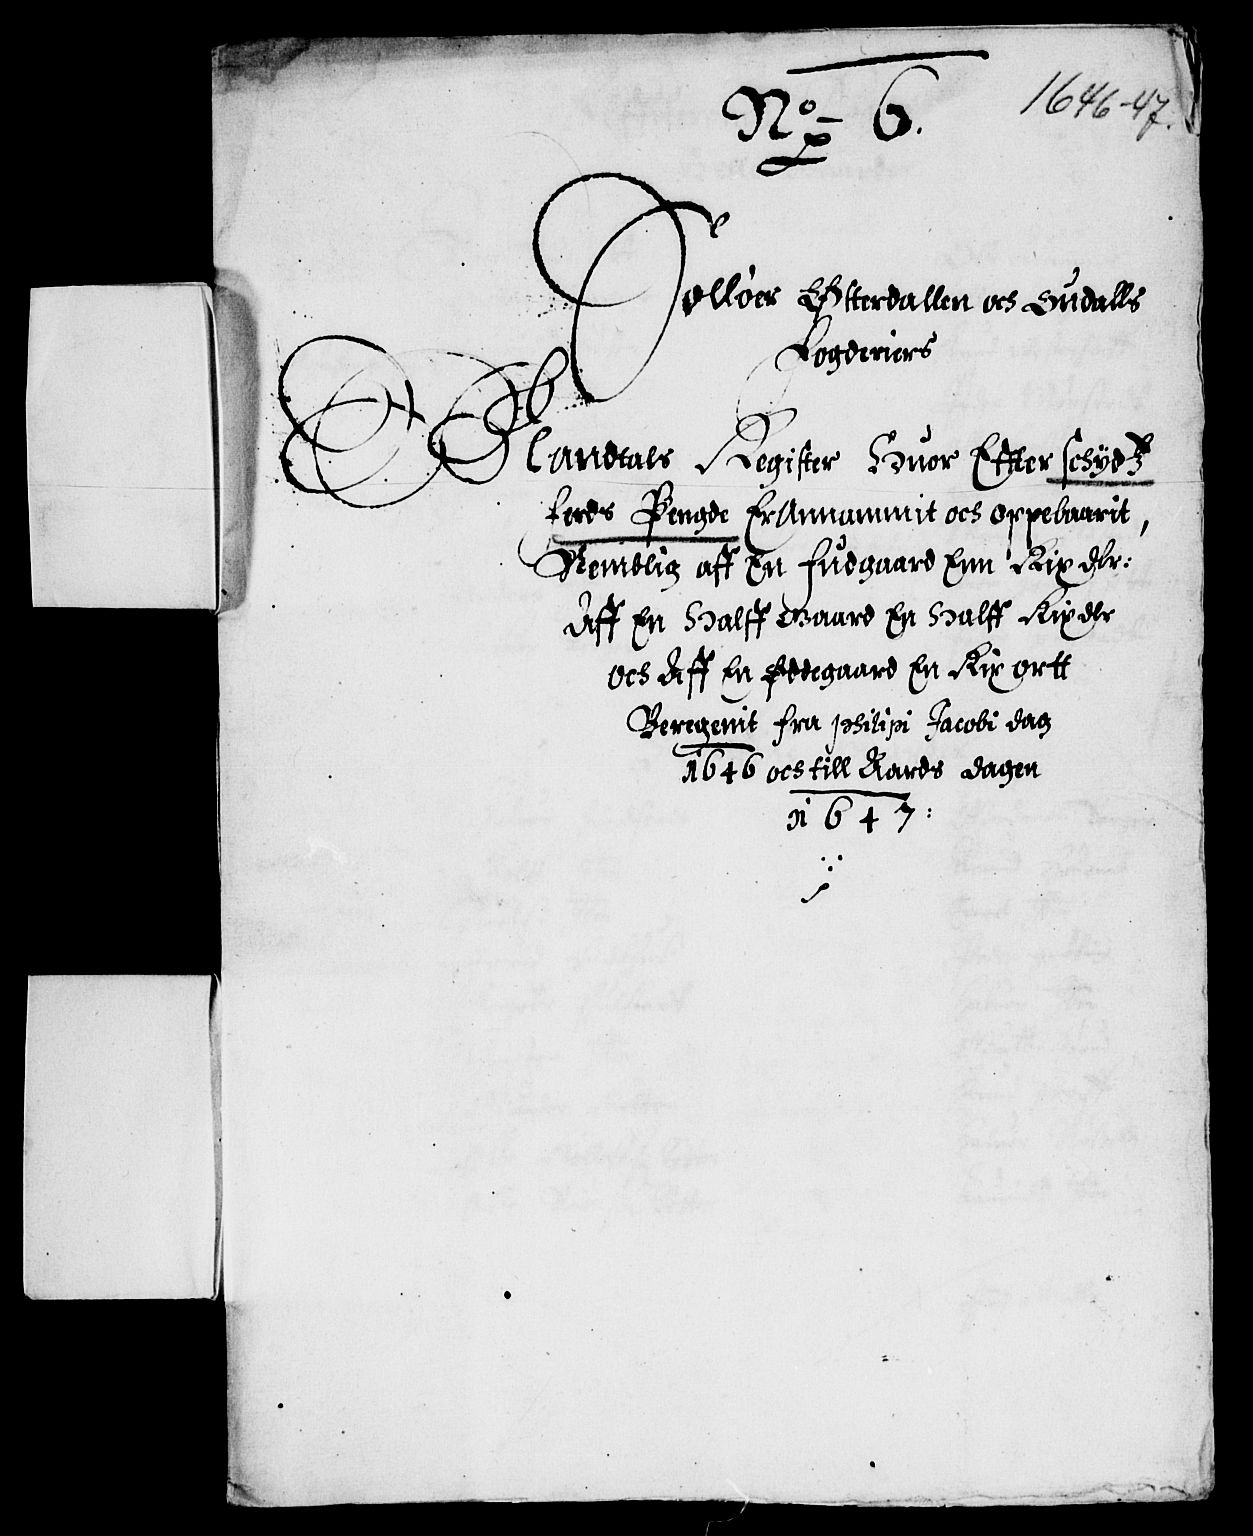 No 6.
1646-47.
Solløer Østterdallen och Gudalls
Fogderiers
Mandtals Register Huor Efter schydtz
ferds Pengde Er Annammit och oppebaarit,
Nemblig aff En fudgaard Enn Rix dlr:
Aff En Halff Gaard En Halff Rix dlr
och Aff En Øddegaard En Rix ortt
Beregenit fra philipi Jacobi dag
1646 och till Aards dagen
1647: